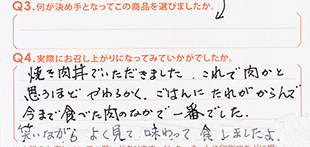 Q3.何が決め手となってこの商品を選びましたか。
Q4.実際にお召し上がりになってみていかがでしたか。
焼き肉丼でいただきました。これで肉かと
思うほどやわらかく、ごはんにたれがからんで
今まで食べた肉のなかで一番でした。
笑いながらよく見て、味わって食しましたよ。